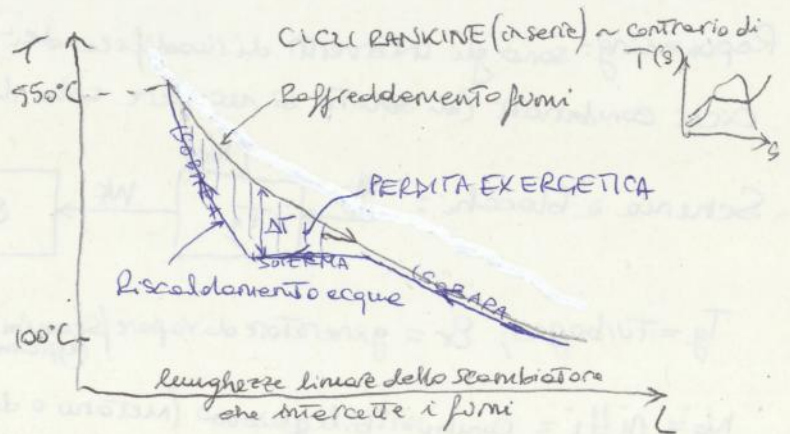 CICLI RANKINE (in serie) ~ contrario di
T(s)
T
550°C
Raffreddamento fumi
S
ISOBARA
PERDITA EXERGETICA
ΔT
ISOTERMA
ISOBARA
Riscaldamento acqua
100°C
lunghezza lineare dello scambiatore
che intercetta i fumi
L